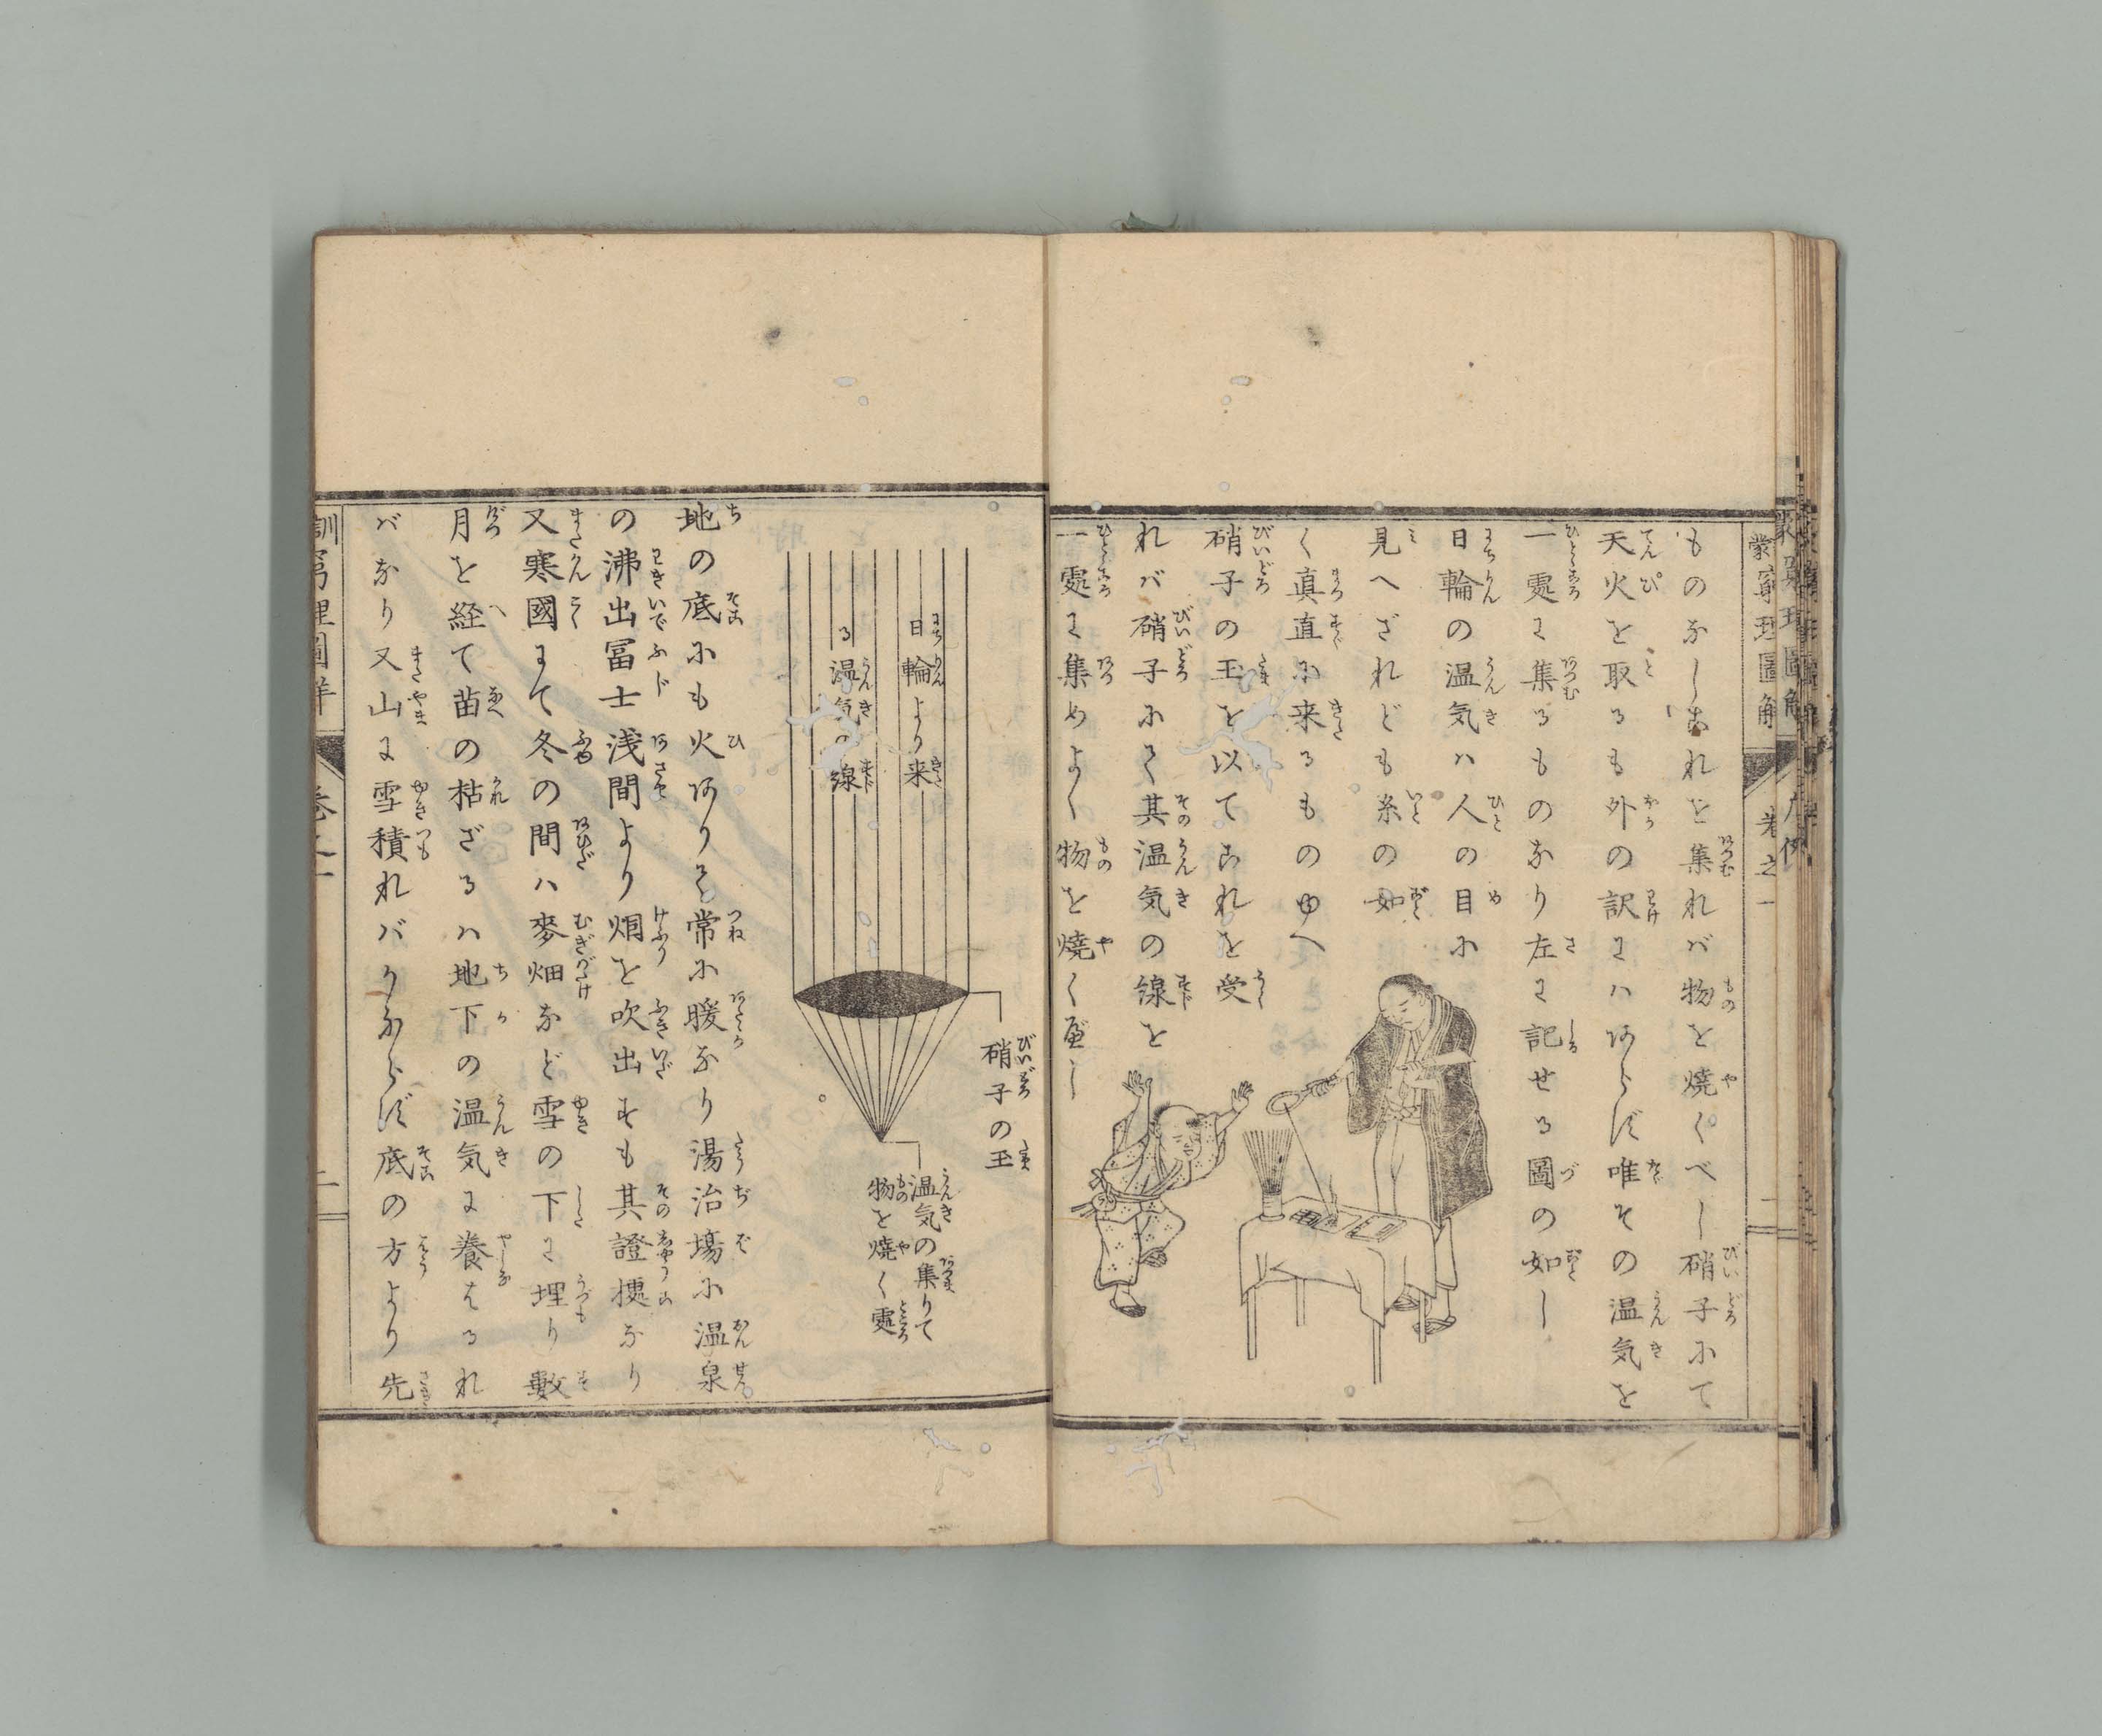 ものなしこれを集れバ物を焼くべし硝子にて
天火を取るも外の訳にハあらず唯その温気を
一處に集るものなり左に記せる圖の如し
日輪の温気ハ人の目に
見へざれども糸の如
く真直に来るものゆへ
硝子の玉を以てこれを受
れバ硝子にて其温気の線を
一處に集めよく物を焼くべし
日輪より来
る温気の線
硝子の玉
温気の集りて
物を焼く處
地の底にも火ありて常に暖なり湯治塲に温泉
の沸出冨士浅間より烟を吹出すも其證據なり
又寒國にて冬の間ハ麥畑など雪の下に埋り數
月を経て苗の枯ざるハ地下の温気に養はるれ
バなり又山に雪積れバかならず底の方より先
訓窮理圖解
巻之一